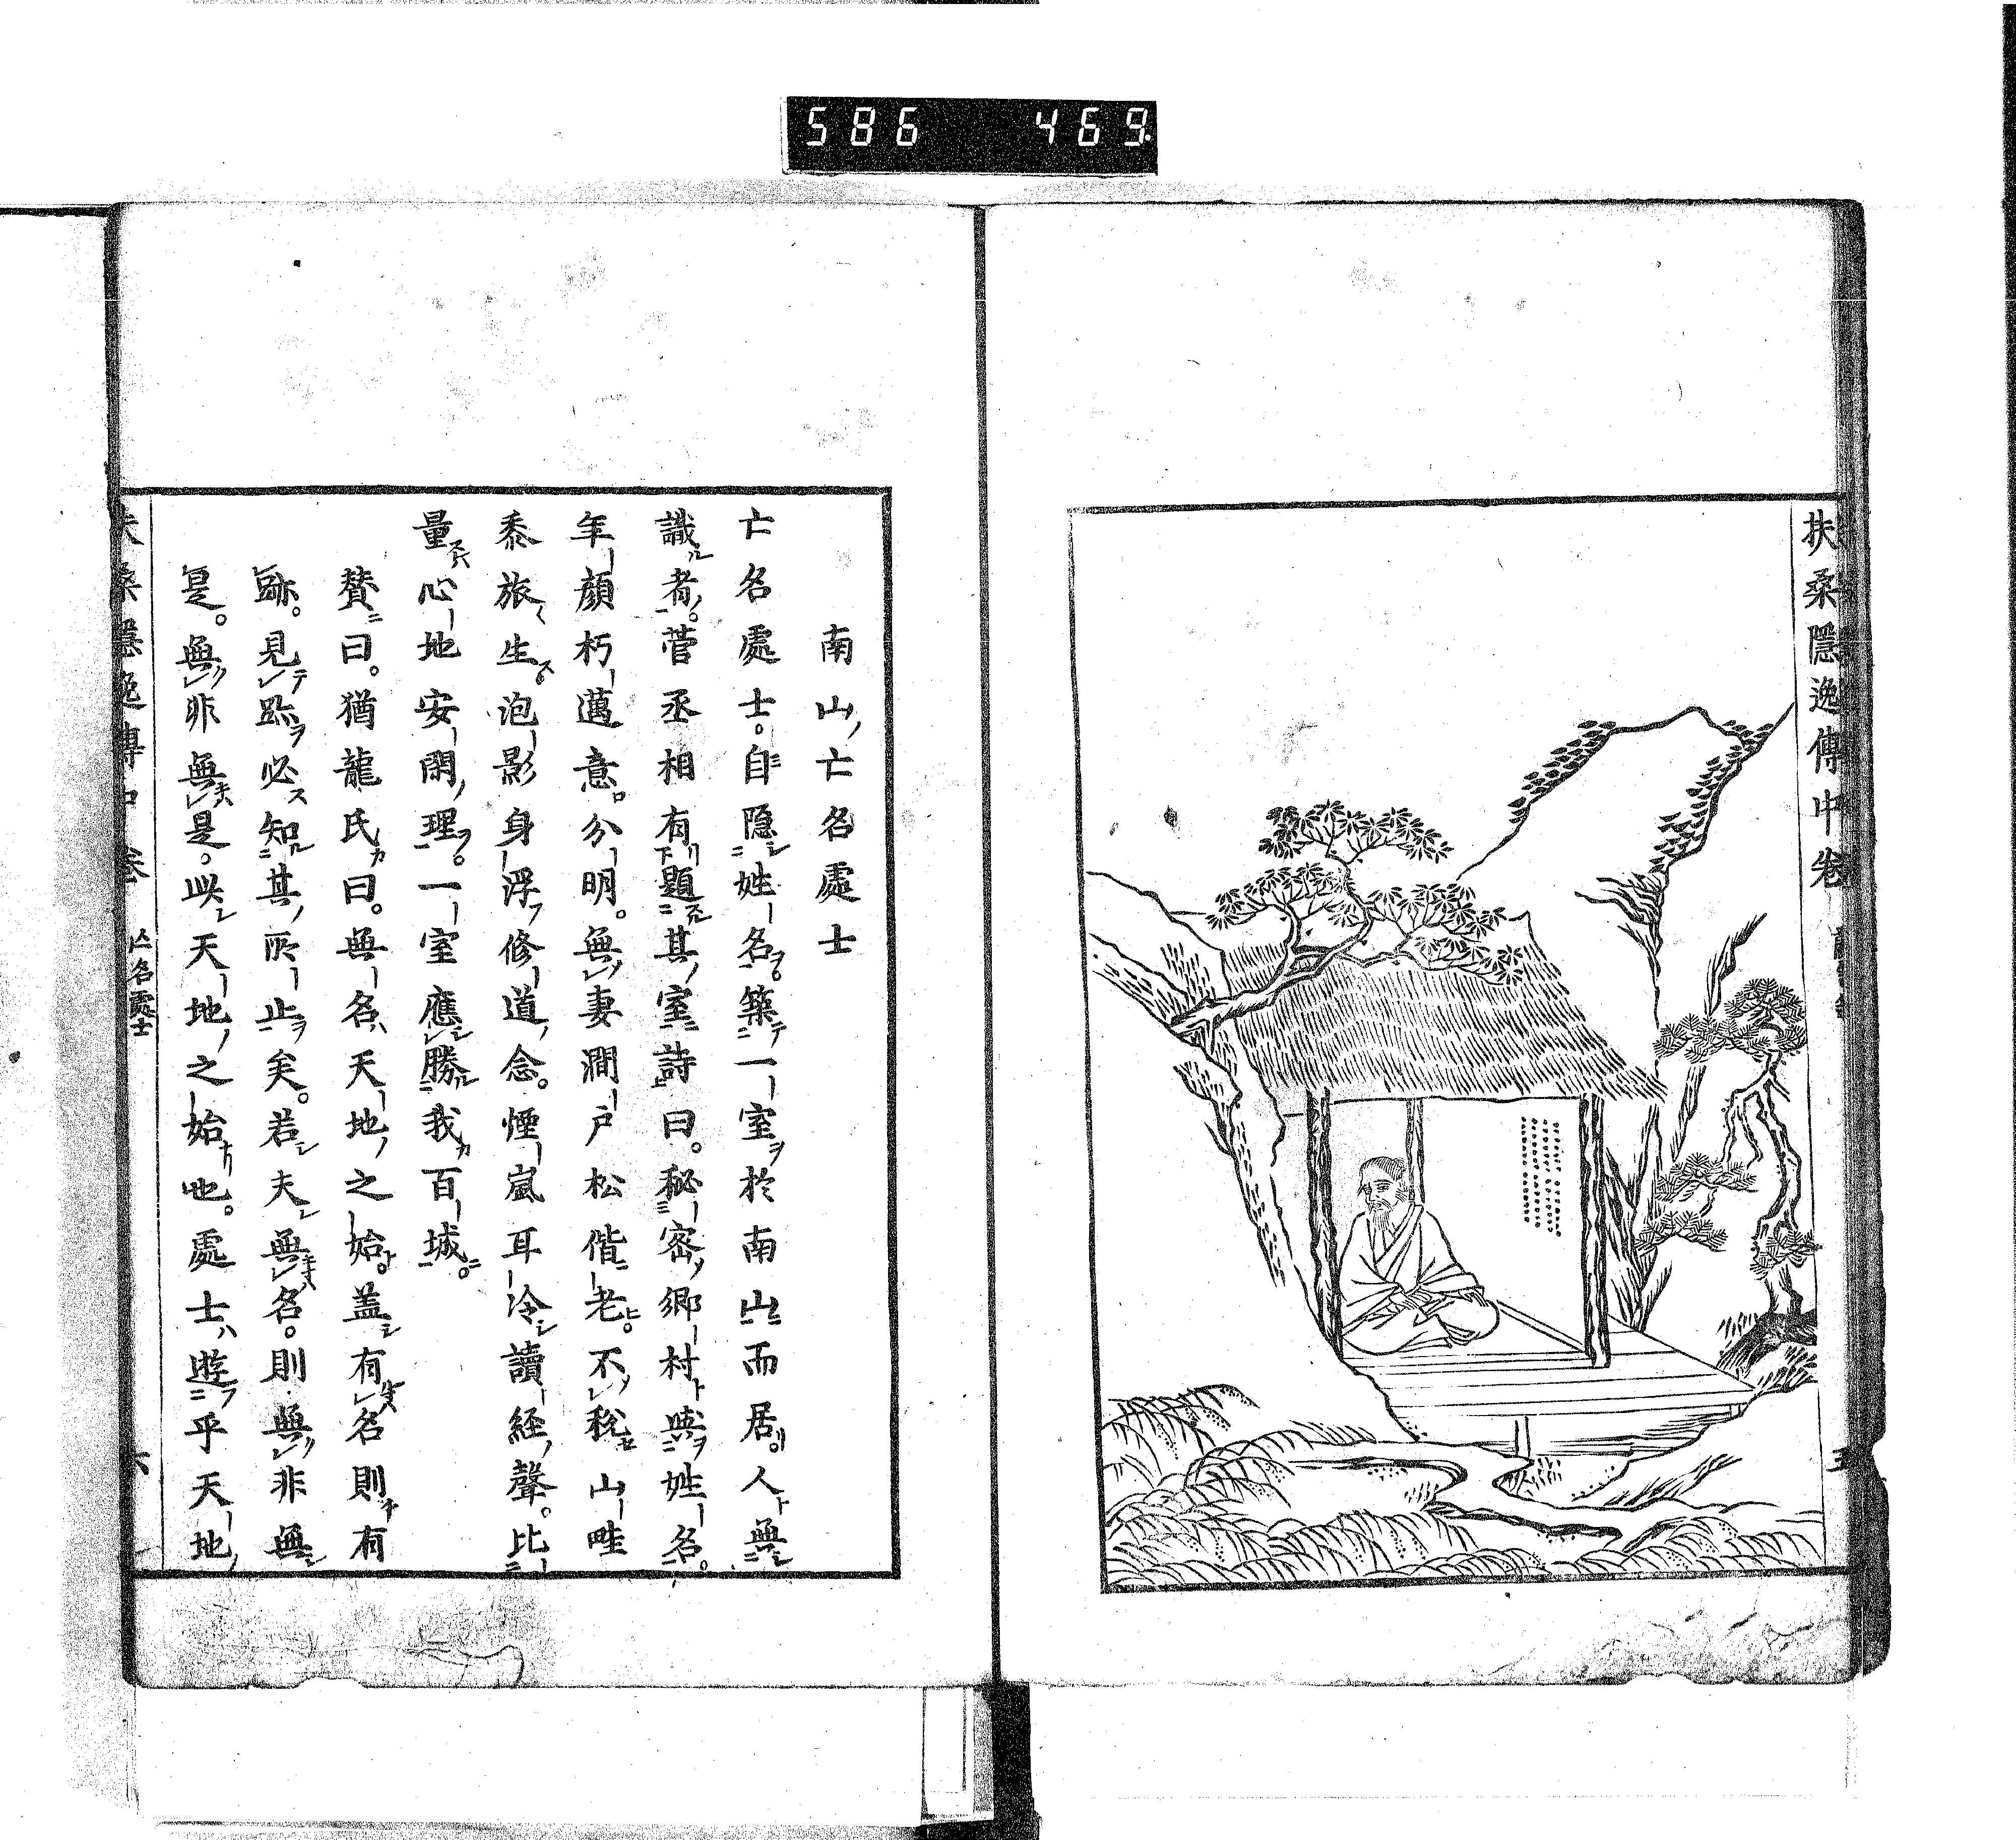 586 469
扶桑隱逸傳中卷
五
南山亡名處士
亡名處士。自隐姓名。築一室於南山而居。人無
識者。菅丞相有題其室詩曰。秘密鄉村與姓名。
年顔朽邁意分明。無妻澗戸松偕老。不稅山畦
黍旅生。泡影身浮修道念。煙嵐耳冷讀経聲。比
量心地安閑理。一室應勝我百城。
賛曰。猶龍氏曰。無名天地之始。盖有名則有
跡。見跡必知其所止矣。若夫無名。則無非無
是。無非無是。此天地之始也。處士遊乎天地
扶桑隱逸傳中卷 亡名處士 六